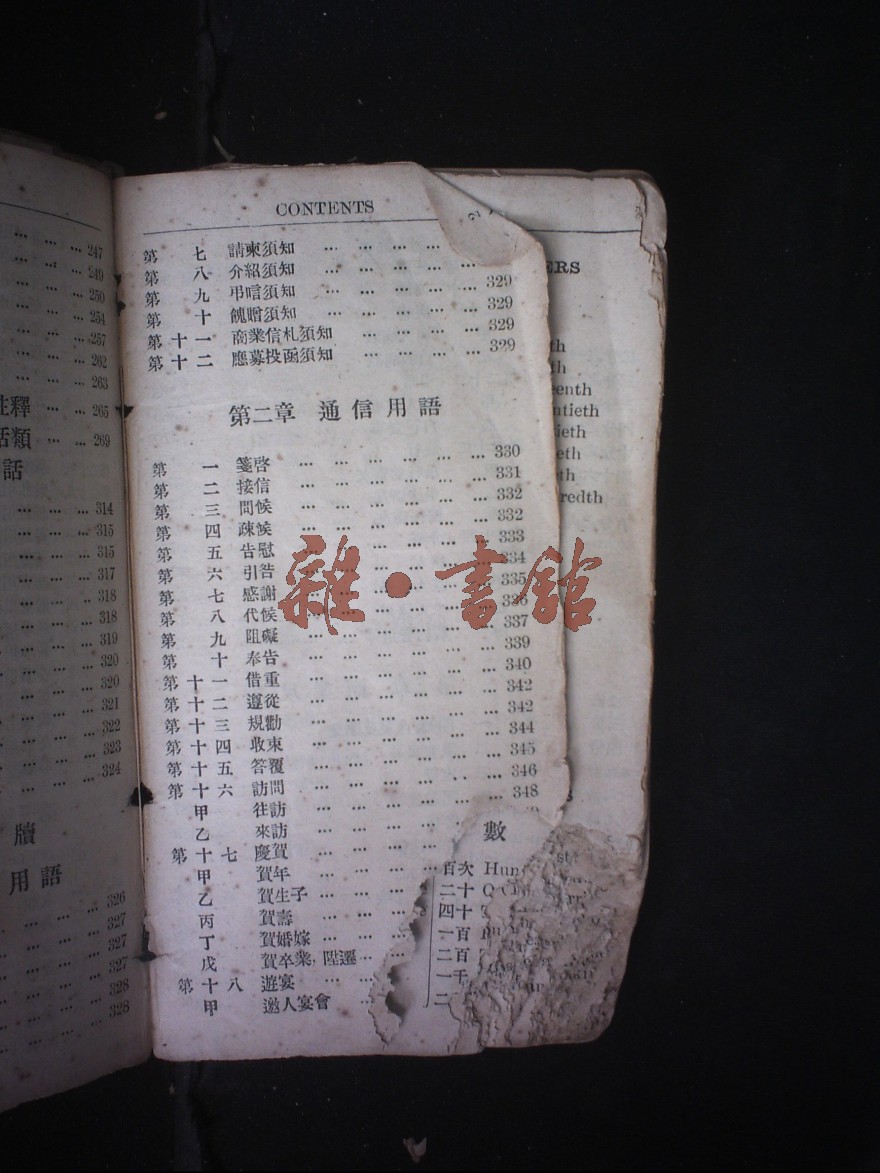 ... ... ... 247
... ... ... 249
... ... ... 250
... ... ... 254
... ... ... 257
... ... ... 262
... ... ... 263
註釋 ... ... 265
話類 ... ... 269
話
... ... ... 314
... ... ... 315
... ... ... 315
... ... ... 317
... ... .. 318
... ... ... 318
... ... ... 319
... ... ... 320
... ... ... 320
... ... ... 321
... ... ... 322
... ... ... 323
... ... ... 324
牘
用語
... ... ... 326
... ... ... 327
... ... ... 327
... ... ... 327
... ... ... 328
... ... ... 328
CONTENTS
第七 請柬須知 ... ... ... ...
第八 介紹須知 ... ... ... ... ...
第九 弔唁須知 ... ... ... ... ... 329
第十 餽贈須知 ... ... ... ... ... 329
第十一 商業信札須知 ... ... ... ... 329
第十二 應募投函須知 ... ... ... ... 329
第二章 通信用語
第一 箋啓 ... ... ... ... ... ... 330
第二 接信 ... ... ... ... ... ... 331
第三 問候 ... ... ... ... ... ... 332
第四 疎候 ... ... ... ... ... ... 332
第五 告慰 ... ... ... ... ... ... 333
第六 引告 ... ... ... ... ... 334
第七 感謝 ... ... ... ... ... 335
第八 代候 ... ... ... ... ... 336
第九 阻礙 ... ... ... ... ... ... 337
第十 奉告 ... ... ... ... ... ... 339
第十一 借重 ... ... ... ... ... ... 340
第十二 遵從 ... ... ... ... ... ... 342
第十三 規勸 ... ... ... ... ... ... 342
第十四 收束 ... ... ... ... ... ... 344
第十五 答覆 ... ... ... ... ... ... 345
第十六 訪問 ... ... ... ... ... ... 346
甲 往訪 ... ... ... ... ... ... 348
乙 來訪 ... ... ... ... ...
第十七 慶賀 ... ... ... ...
甲 賀年 ... ... ... ...
乙 賀生子 ... ... ...
丙 賀壽 ... ... ...
丁 賀婚嫁 ... ... ...
戊 賀卒業, 陞遷 ... ...
第十八 遊宴 ... ... ...
甲 邀人宴會 ...
ERS
th
th
eenth
ntieth
ieth
eth
th
redth
數
百次 Hun
二十
四十
一百
二百
一千
二
雜·書館